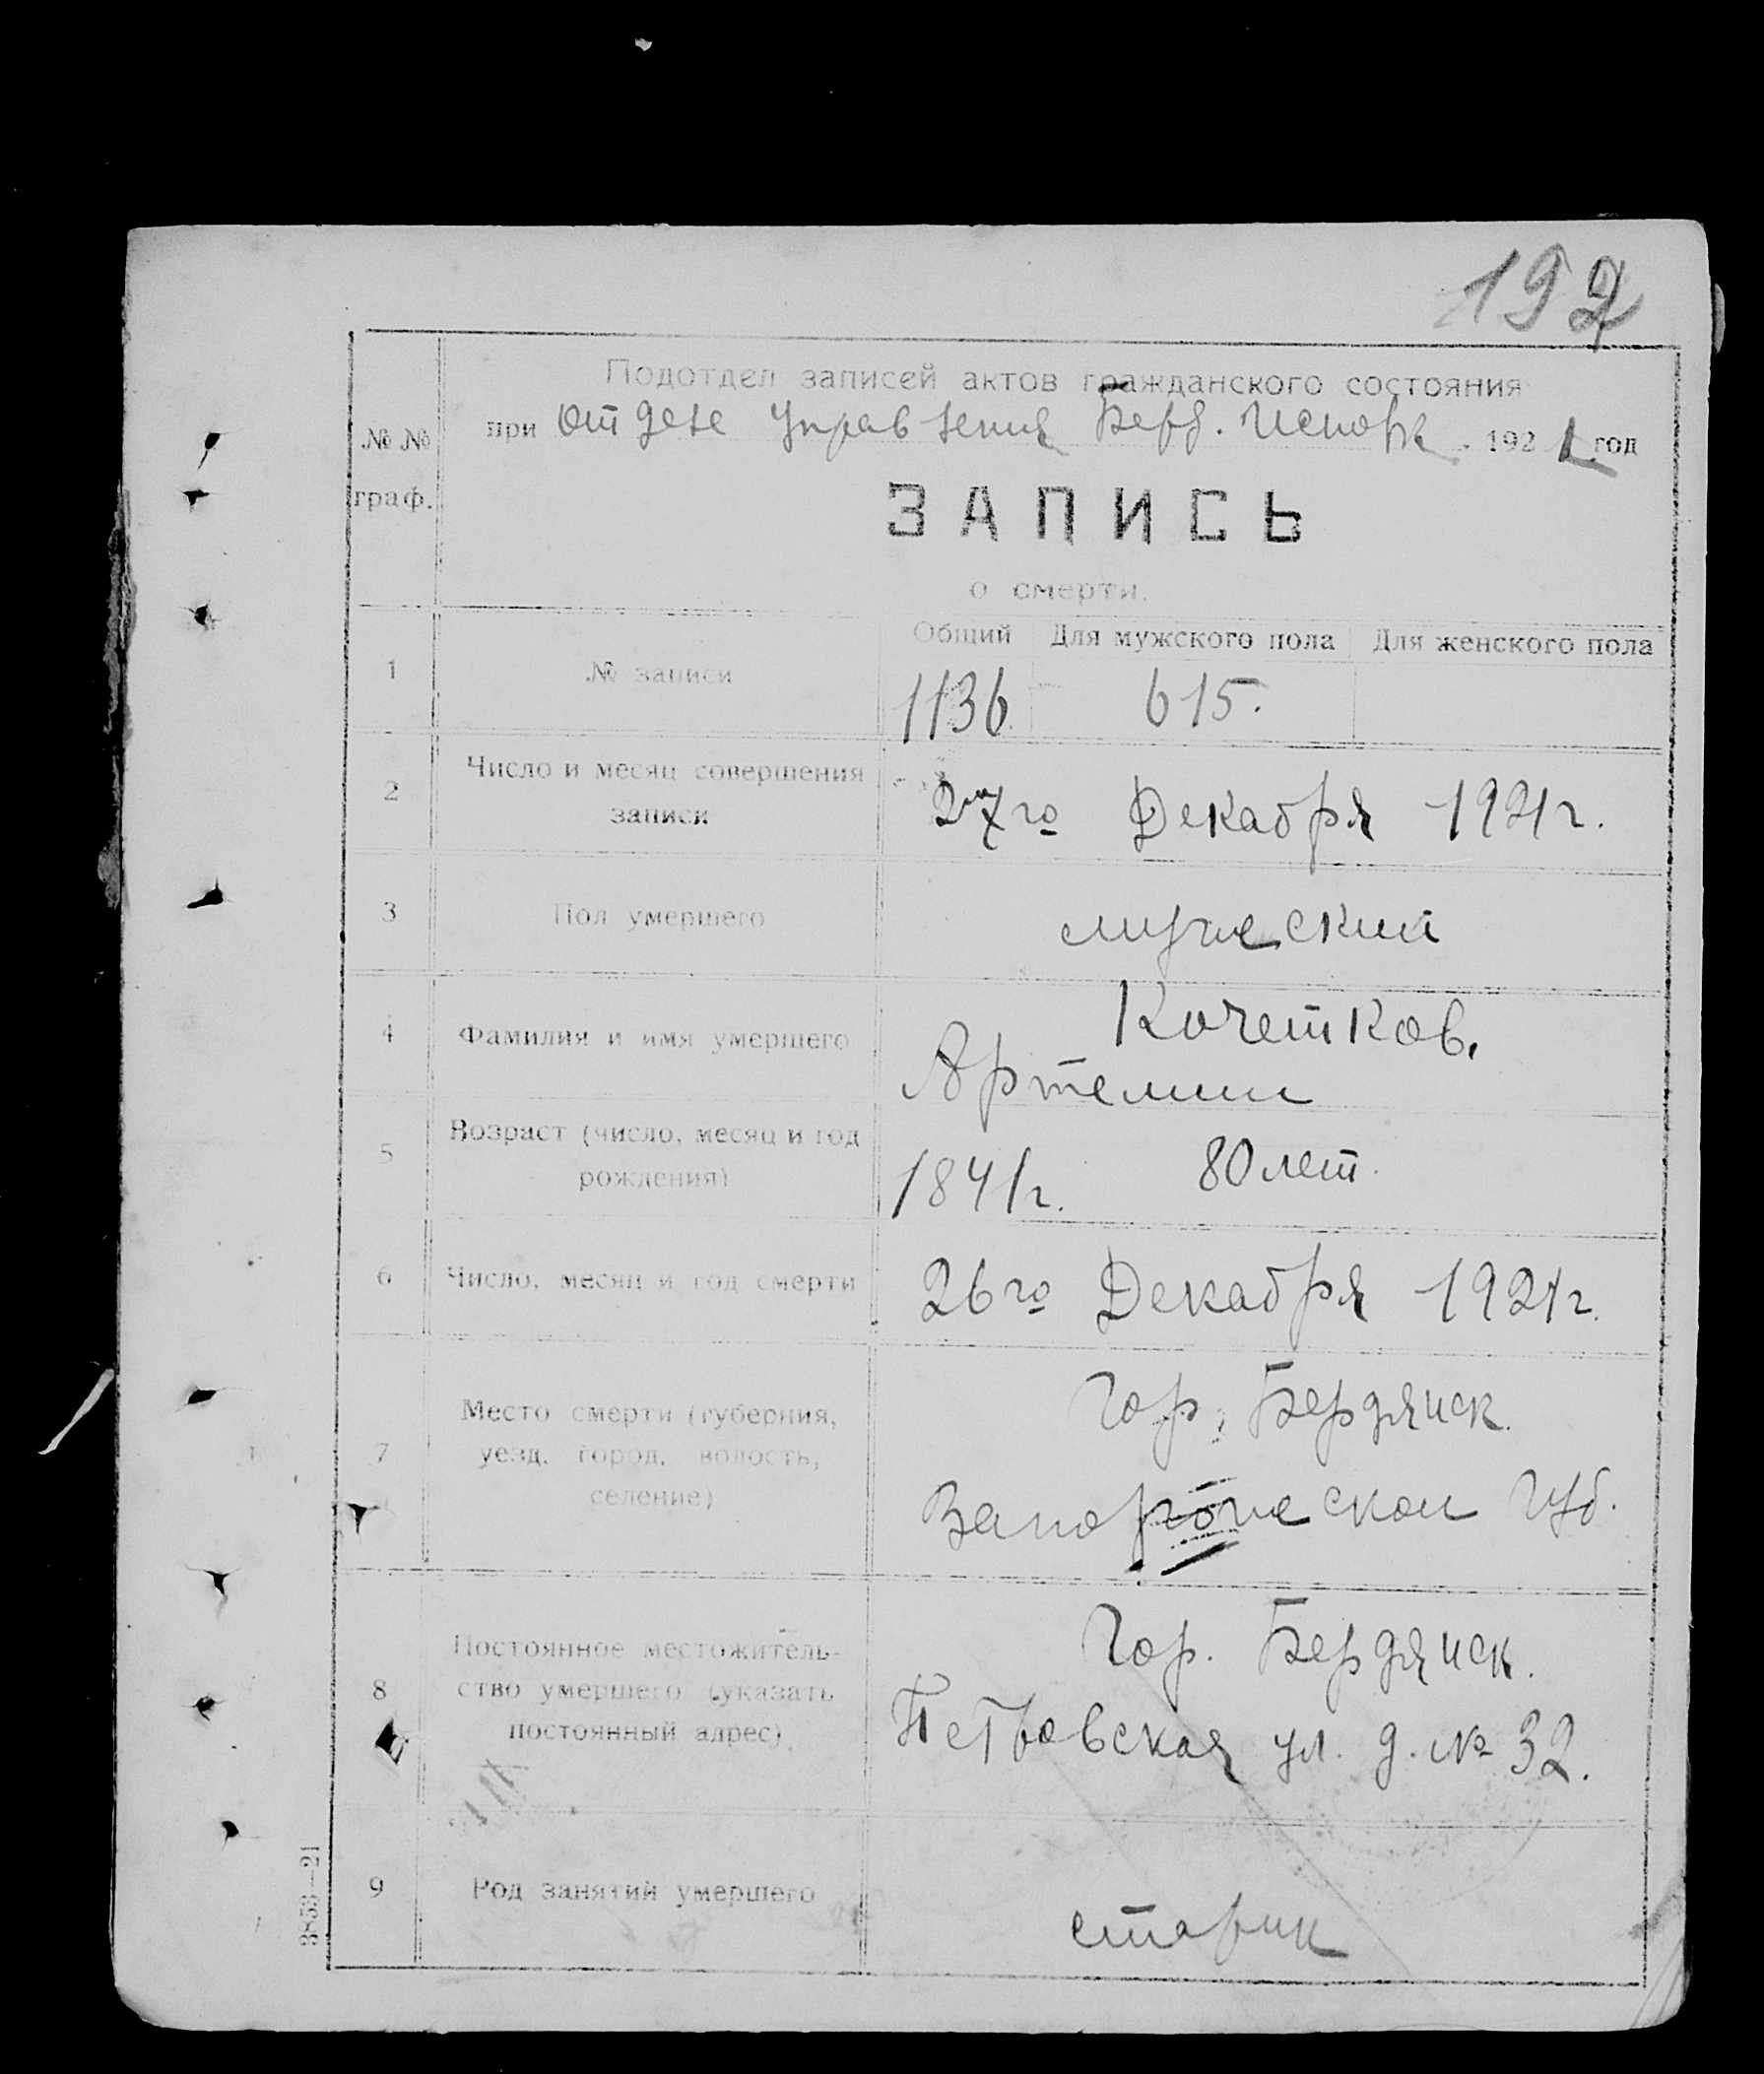 192
Подотдел записей актов гражданского состояния
при отделе управления Берд. Исполк. 1921 год
№ №
граф.
ЗАПИСЬ
о смерти.
Общий Для мужского пола Для женского пола
1 № записи 1136 615.
2 Число и месяц совершения
записи
27го Декабря 1921г.
3 Пол умершего мужеский
4 Фамилия и имя умершего Кочетков.
Артемий
5 Возраст (число, месяц и год
рождения)
1841г. 80 лет.
6 Число, месяц и год смерти 26го Декабря 1921г.
7 Место смерти (губерния,
уезд, город, волость,
селение)
Гор. Бердянск.
Запорожеской Губ.
8 Постоянное местожитель-
ство умершего (указать
постоянный адрес).
Гор. Бердянск.
Петровская ул. д. № 32.
9 Род занятий умершего старик
3853—21